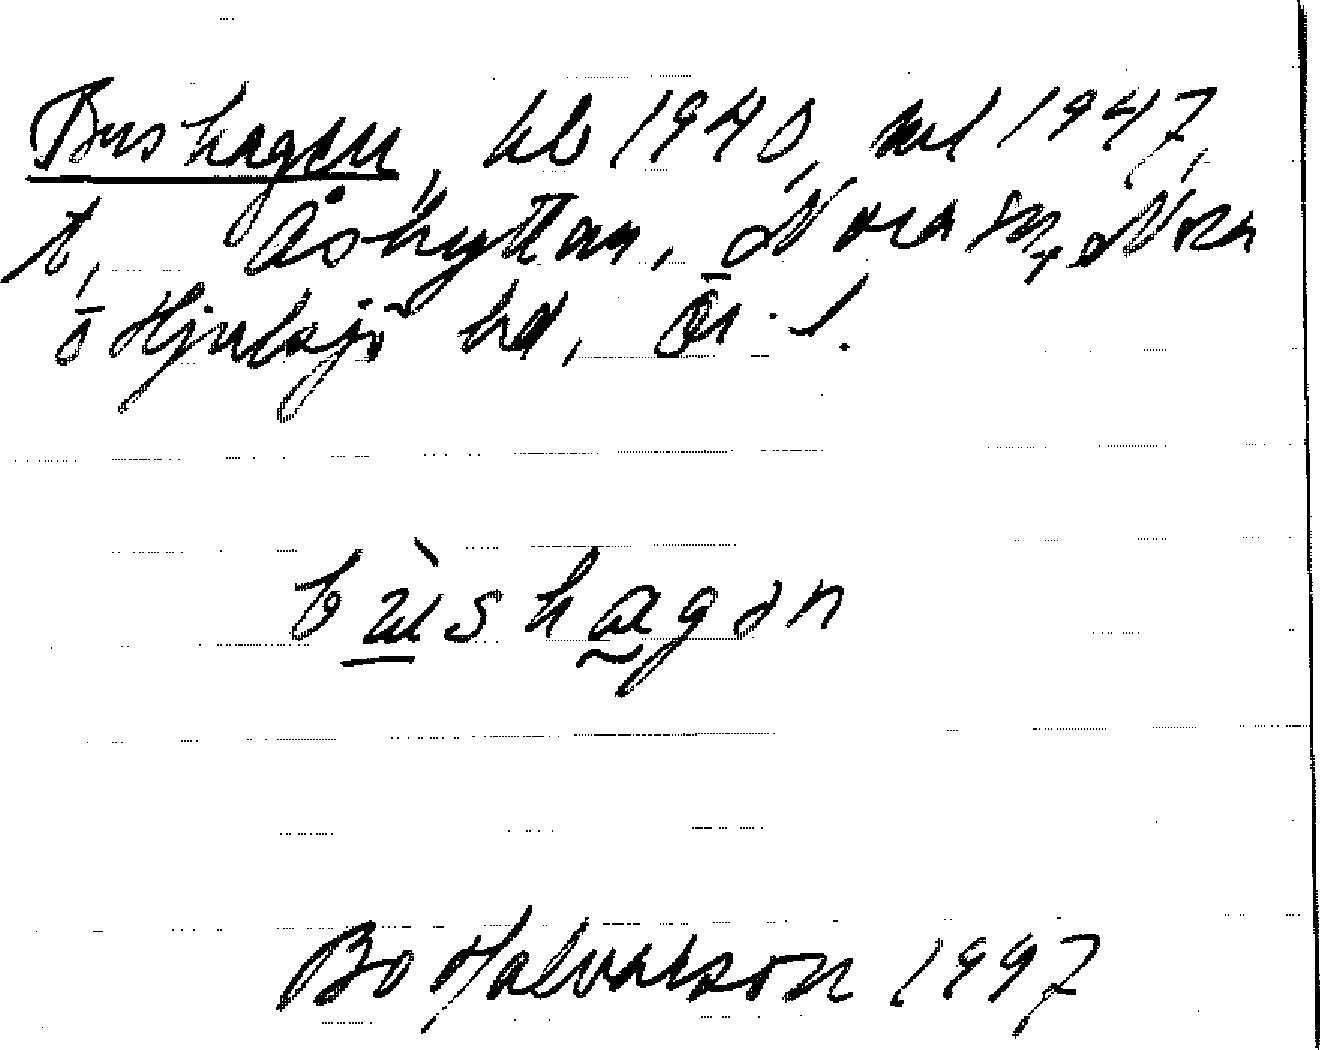 Bushagen, hb 1940, url 1947,
t. Åshyttan, Nora sn, Nora
o Hjulsjö hd, Ör. l.
bùshagən
Bo Halvarson 1997